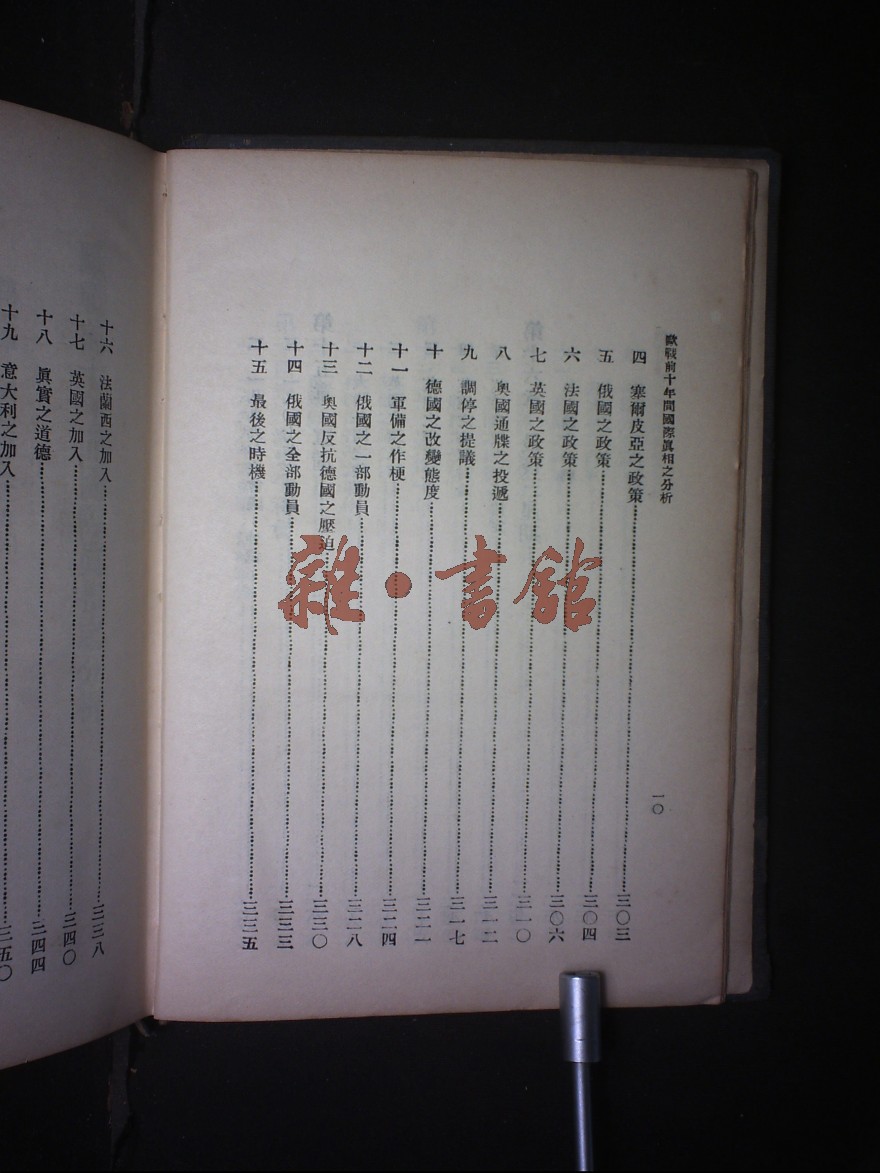 歐戰前十年間國際眞相之分析
一〇
四 塞爾皮亞之政策……三〇三
五 俄國之政策……三〇四
六 法國之政策……三〇六
七 英國之政策……三一〇
八 奧國通牒之投遞……三一二
九 調停之提議……三一七
十 德國之改變態度……三二一
十一 軍備之作梗……三二四
十二 俄國之一部動員……三二八
十三 奧國反抗德國之壓迫……三三〇
十四 俄國之全部動員……三三三
十五 最後之時機……三三五
十六 法蘭西之加入……三三八
十七 英國之加入……三四〇
十八 眞實之道德……三四四
十九 意大利之加入……三五〇
雜·書館